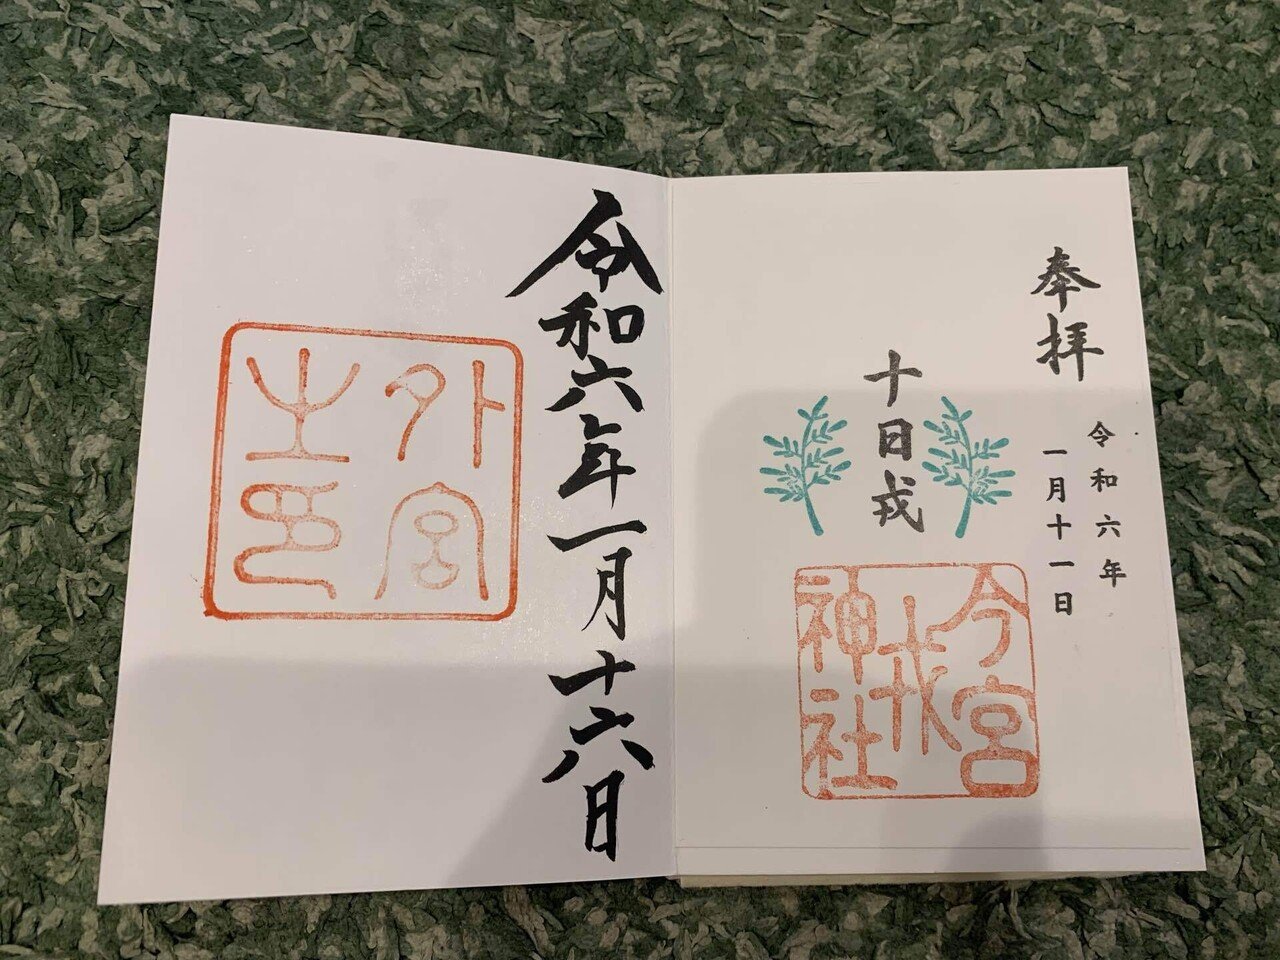 奉拝
令和六年
一月十一日
十日戎
今宮
戎
神社
令和六年一月十六日
外宮
之印